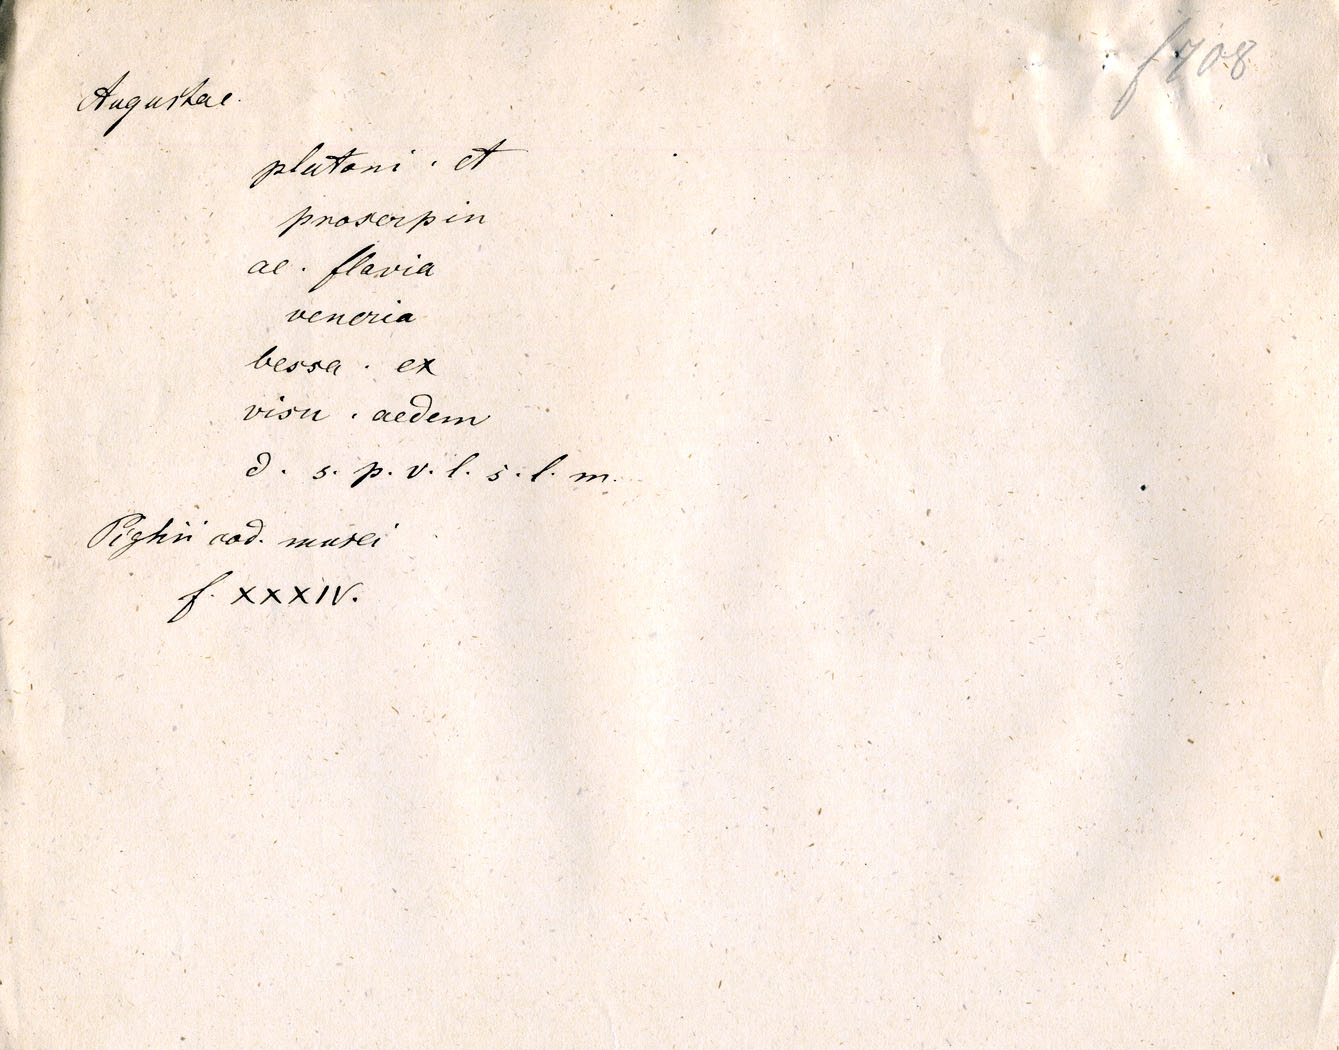 f 708
Augustae.
plutoni · et
proserpin
ae · flavia
veneria
bessa · ex
visu · aedem
d · s · p · v · l · s · l · m.
Pighii cod. musei
f. XXXIV.